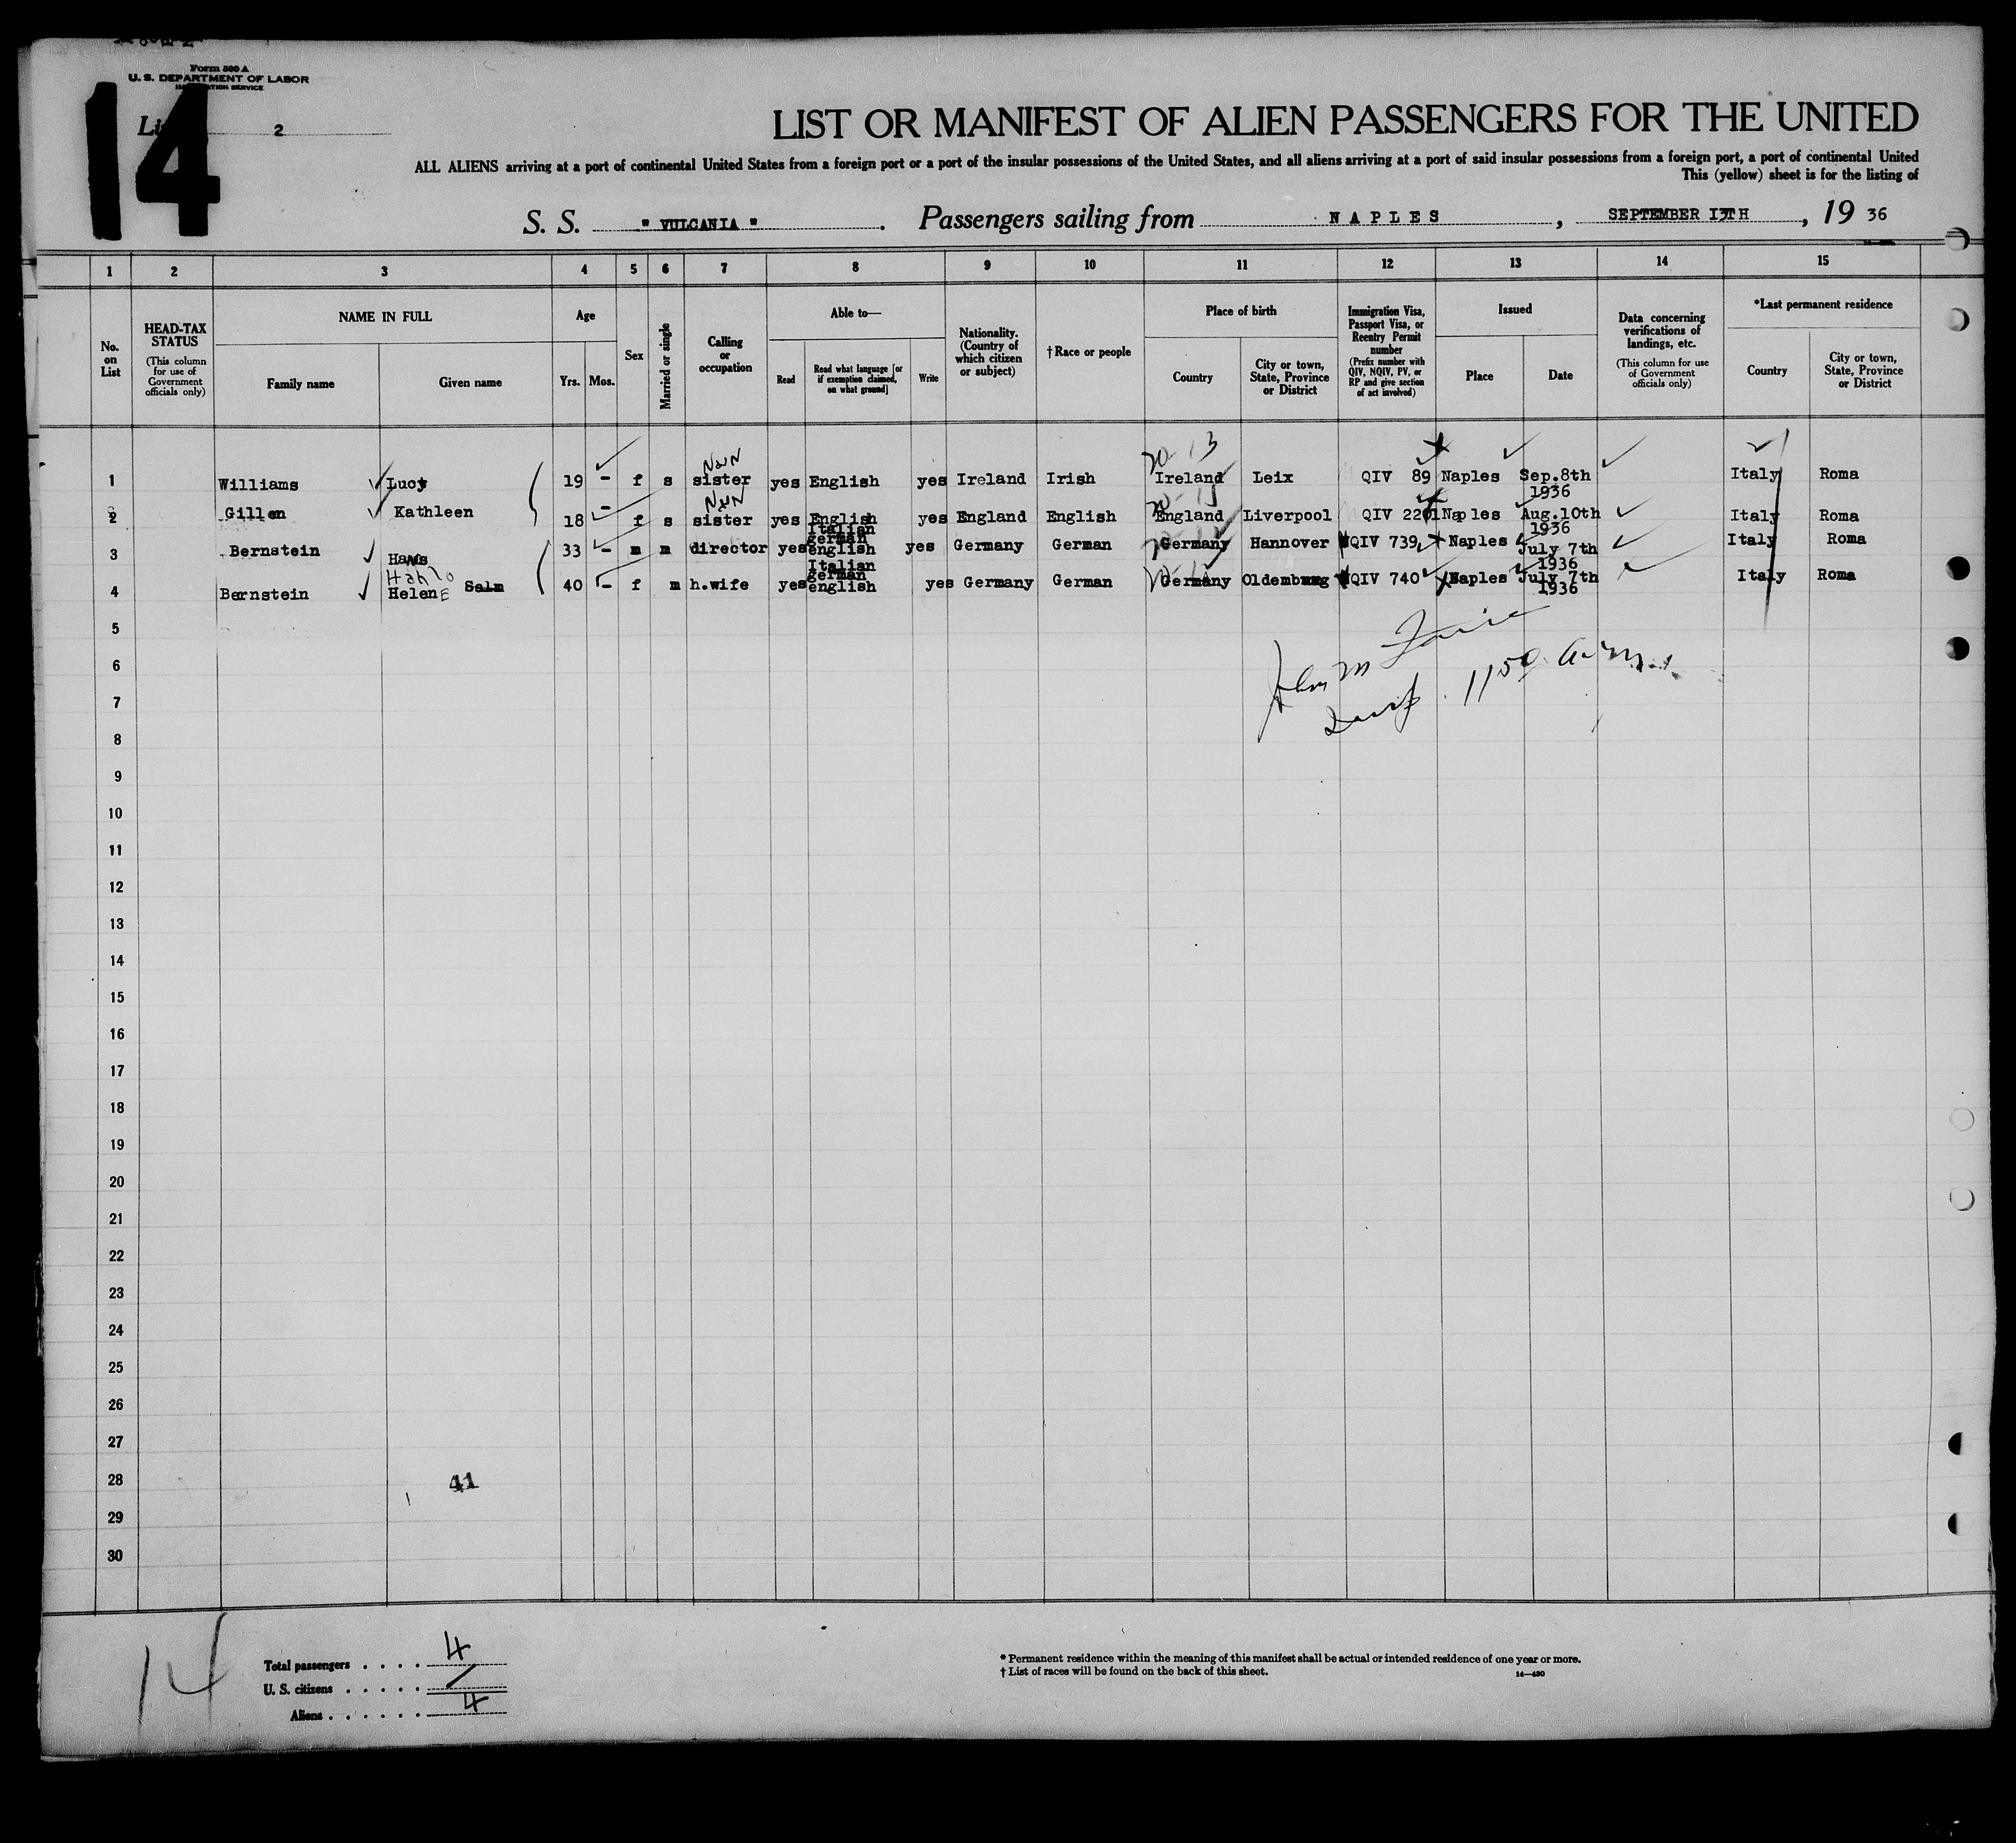 Form 500 A
U. S. DEPARTMENT OF LABOR
14
2
LIST OR MANIFEST OF ALIEN PASSENGERS FOR THE UNITED
ALL ALIENS arriving at a port of continental United States from a foreign port or a port of the insular possessions of the United States, and all aliens arriving at a port of said insular possessions from a foreign port, a port of continental United
This (yellow) sheet is for the listing of
S. S. " VULCANIA ". Passengers sailing from NAPLES, SEPTEMBER 13TH, 19 36
1 2 3 4 5 6 7 8 9 10 11 12 13 14 15
No. on List
HEAD-TAX STATUS (This column for use of Government officials only)
NAME IN FULL
Family name Given name
Age
Yrs. Mos.
Sex
Married or single
Calling or occupation
Able to—
Read Read what language [or if exemption claimed, on what ground] Write
Nationality. (Country of which citizen or subject)
†Race or people
Place of birth
Country City or town, State, Province or District
Immigration Visa, Passport Visa, or Reentry Permit number (Prefix number with QIV, NQIV, PV, or RP and give section of act involved)
Issued
Place Date
Data concerning verifications of landings, etc. (This column for use of Government officials only)
*Last permanent residence
Country City or town, State, Province or District
1 Williams Lucy 19 - f s Nun sister yes English yes Ireland Irish Ireland Leix QIV 89 Naples Sep.8th 1936 Italy Roma
2 Gillen Kathleen 18 - f s Nun sister yes English yes England English England Liverpool QIV 2201 Naples Aug.10th 1936 Italy Roma
3 Bernstein Hans 33 - m m director yes Italian german english yes Germany German Germany Hannover NQIV 739 Naples July 7th 1936 Italy Roma
4 Bernstein Hahlo Helene Salm 40 - f m h.wife yes Italian german english yes Germany German Germany Oldemburg NQIV 740 Naples July 7th 1936 Italy Roma
5
6
7
8
9
10
11
12
13
14
15
16
17
18
19
20
21
22
23
24
25
26
27
28 41
29
30
14
Total passengers . . . . 4
U. S. citizens . . . . . /
Aliens . . . . . . 4
* Permanent residence within the meaning of this manifest shall be actual or intended residence of one year or more.
† List of races will be found on the back of this sheet.
14—480